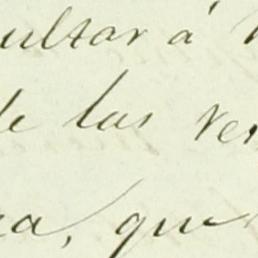 ultar á
de las ver
ra, que